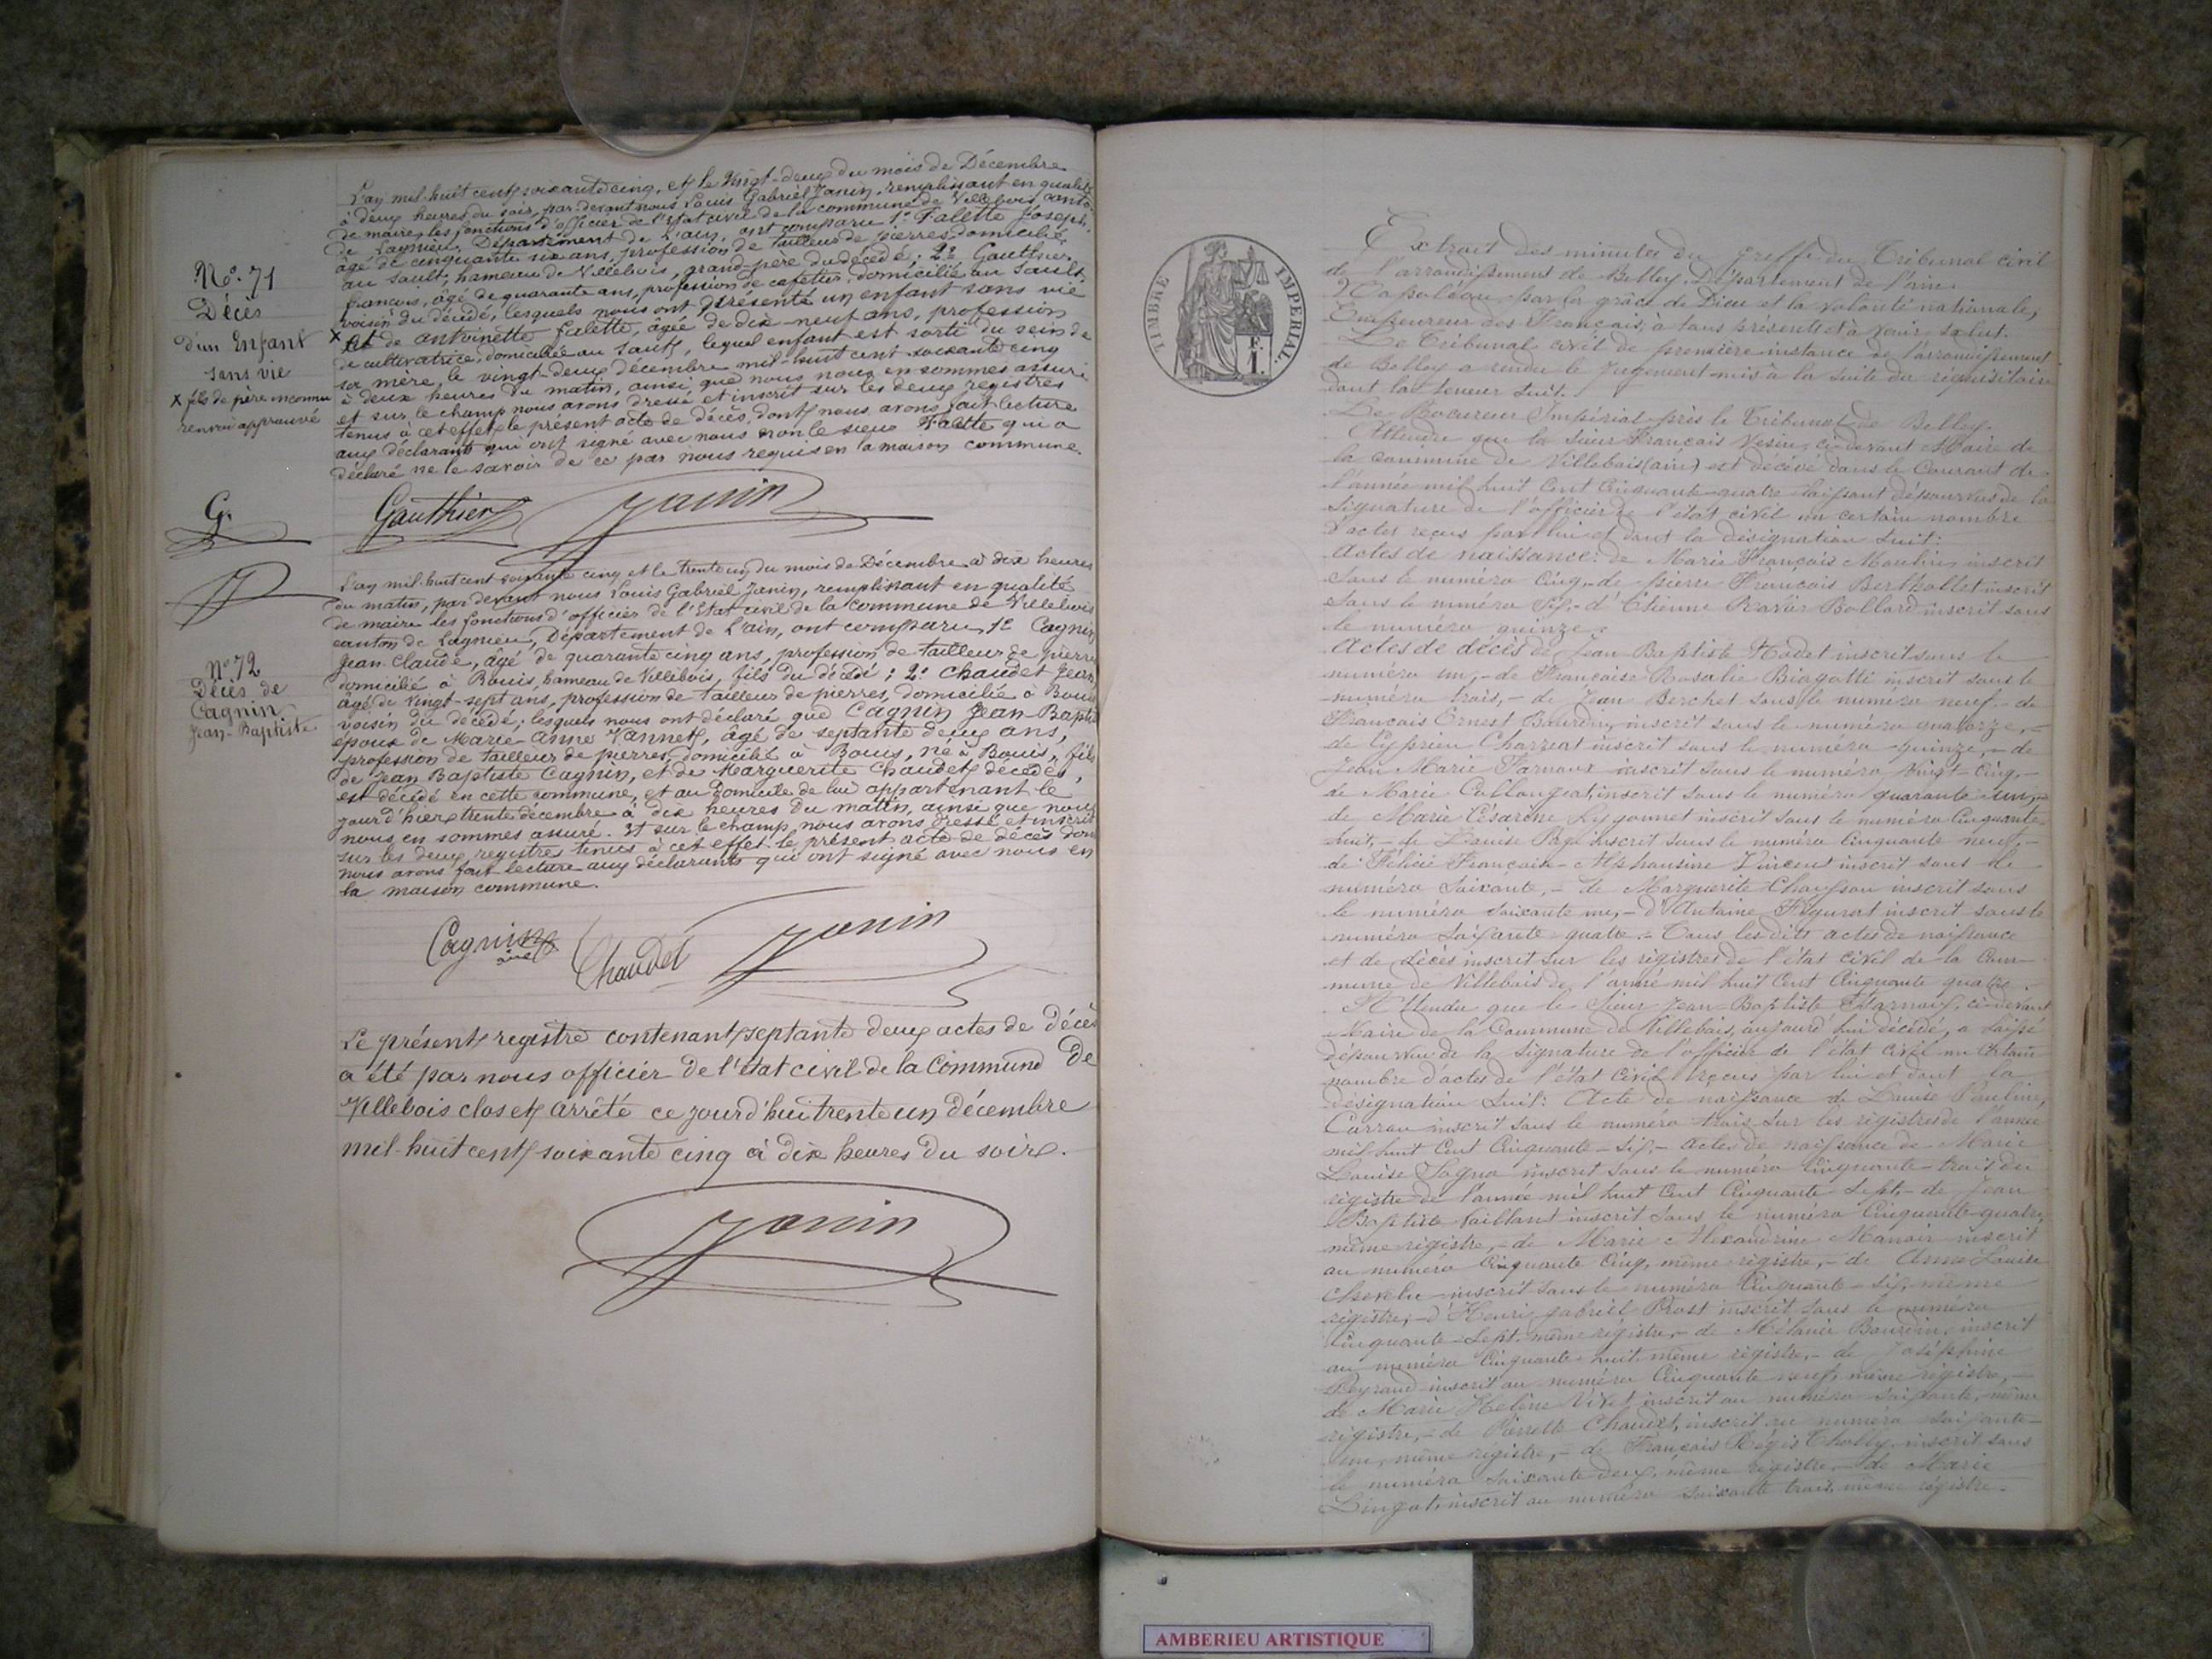 L'an mil-huit cent soixante cinq, et le Vingt-deux du mois de Décembre
à deux heures du soir, par-devant nous Louis Gabriel Janin, remplissant en qualité
de maire, les fonctions d'officier de l'Etat civil de la commune de Villebois, canton
de Lagnieu, Département de l'ain, ont comparu 1º Falette Joseph,
âgé de cinquante six ans, profession de tailleur de pierres domicilié
au Sault, hameau de Villebois, grand-père du décédé; 2º Gauthier
françois, âgé de quarante ans, profession de cafetier, domicilié au Sault,
voisin du décédé, lesquels nous ont présenté un enfant sans vie
X et de antoinette falette, âgée de dix-neuf ans, profession
de cultivatrice, domiciliée au Sault, lequel enfant est sorti du sein de
sa mère, le vingt-deux décembre mil-huit cent soixante cinq
à deux heures du matin, ainsi que nous nous en sommes assuré
et sur le champ nous avons dressé et inscrit sur les deux registres
tenus à cet effet le présent acte de décès, dont nous avons fait lecture
aux déclarants qui ont signé avec nous non le sieur Falette qui a
déclaré ne le savoir de ce par nous requis en la maison commune.
Nº 71
Décès
d'un Enfant
sans vie
X fils de père inconnu
renvoi approuvé
G.
Gauthier
Janin
L'an mil-huit cent soixante cinq et le trente un du mois de Décembre à dix heures
du matin, par devant nous Louis Gabriel Janin, remplissant en qualité
de maire les fonctions d'officier de l'Etat civil de la commune de Villebois
canton de Lagnieu, Département de L'ain, ont comparu, 1º Cagnin
Jean Claude, âgé de quarante cinq ans, profession de tailleur de pierres
domicilié à Bouis, hameau de Villebois, fils du décédé; 2º Chaudet Jean
âgé de vingt-sept ans, profession de tailleur de pierres, domicilié à Bouis
voisin du décédé; lesquels nous ont déclaré que Cagnin Jean-Baptis
époux de Marie-Anne Vannet, âgé de septante deux ans,
profession de tailleur de pierres, domicilié à Bouis, né à Bouis, fils
de Jean Baptiste Cagnin, et de Marguerite Chaudet décédés,
est décédé en cette commune, et au domicile de lui appartenant le
jour d'hier trente décembre à dix heures du matin, ainsi que nous
nous en sommes assuré. Et sur le champ nous avons dressé et inscrit
sur les deux registres tenus à cet effet le présent acte de décès dont
nous avons fait lecture aux déclarants qui ont signé avec nous en
la maison commune.
Nº 72
Décès de
Cagnin
Jean-Baptiste
Cagnin
aîné
Chaudet
Janin
Le présent registre contenant septante deux actes de décès
a été par nous officier de l'état civil de la Commune de
Villebois clos et arrêté ce jourd'hui trente un décembre
mil-huit cent soixante cinq à dix heures du soir.
Janin
TIMBRE IMPERIAL.
Extrait des minutes du greffe du Tribunal civil
de l'arrondissement de Belley, Département de l'ain.
Napoléon par la grâce de Dieu et la volonté nationale,
Empereur des Français, à tous présents et à venir, salut.
Le Tribunal civil de première instance de l'arrondissement
de Belley a rendu le Jugement mis à la suite du réquisitoire
dont la teneur suit.
Le Procureur Impérial près le Tribunal de Belley.
Attendu que le sieur Français Vesin, ci-devant Maire de
la commune de Villebois (ain) est décédé dans le Courant de
l'année mil huit Cent Cinquante-quatre laissant dépourvus de la
Signature de l'officier de l'état civil un certain nombre
d'actes reçus par lui et dont la désignation suit:
Actes de naissance: de Marie François Moulin, inscrit
sous le numéro Cinq,- de pierre François Berthollet inscrit
sous le numéro Six,- d'Etienne Xavier Ballard inscrit sous
le numéro quinze.
Actes de décès de Jean Baptiste Nodet inscrit sous le
numéro un,- de Françoise Rosalie Biogotti inscrit sous le
numéro trois,- de Jean Berchet sous le numéro neuf,- de
François Ernest Bourdin, inscrit sous le numéro quatorze,-
de Cyprien Charreat inscrit sous le numéro quinze,- de
Jean Marie Farnoux inscrit sous le numéro Vingt-Cinq,-
de Marie Callongeat, inscrit sous le numéro quarante un,-
de Marie Césarine Lygonnet inscrit sous le numéro Cinquante
huit,- de Louise Page inscrit sous le numéro Cinquante neuf,-
de Félicie Françoise Alphonsine Vincent inscrit sous le
numéro Soixante,- de Marguerite Chausson inscrit sous
le numéro soixante un,- d'Antoine Figurat inscrit sous le
numéro Soixante-quatre.- Tous les dits actes de naissance
et de décès inscrit sur les registres de l'état civil de la Com-
mune de Villebois de l'année mil huit Cent Cinquante quatre.
Attendu que le Sieur Jean-Baptiste Marnoux, ci-devant
Maire de la Commune de Villebois, aujourd'hui décédé, a laissé
dépourvu de la Signature de l'officier de l'état civil un Certain
nombre d'actes de l'état civil reçus par lui et dont la
désignation suit: Acte de naissance de Louise Pauline
Carrau inscrit sous le numéro trois sur les registres de l'année
mil huit Cent Cinquante-Six,- Actes de naissance de Marie
Louise Sogno inscrit sous le numéro Cinquante-trois du
registre de l'année mil huit Cent Cinquante-Sept,- de Jean
Baptiste Vaillant inscrit sous le numéro Cinquante quatre,
même registre,- de Marie Alexandrine Manoir inscrit
au numéro Cinquante Cinq, même registre,- de Anne Louise
Chevelu inscrit sous le numéro Cinquante-Six, même
registre,- d'Henri gabriel Prost inscrit sous le numéro
Cinquante-Sept, même régistre,- de Mélanie Bourdin, inscrit
au numéro Cinquante-huit même registre,- de Joséphine
Reyraud inscrit au numéro Cinquante neuf, même régistre,-
de Marie Hélène Vivet inscrit au numéro Soixante, même
registre,- de Pierrette Chaudet, inscrit au numéro soixante-
un, même registre,- de François Régis Tholly, inscrit sous
le numéro soixante deux, même registre,- de Marie
Lingot, inscrit au numéro soixante trois, même régistre.-
AMBERIEU ARTISTIQUE